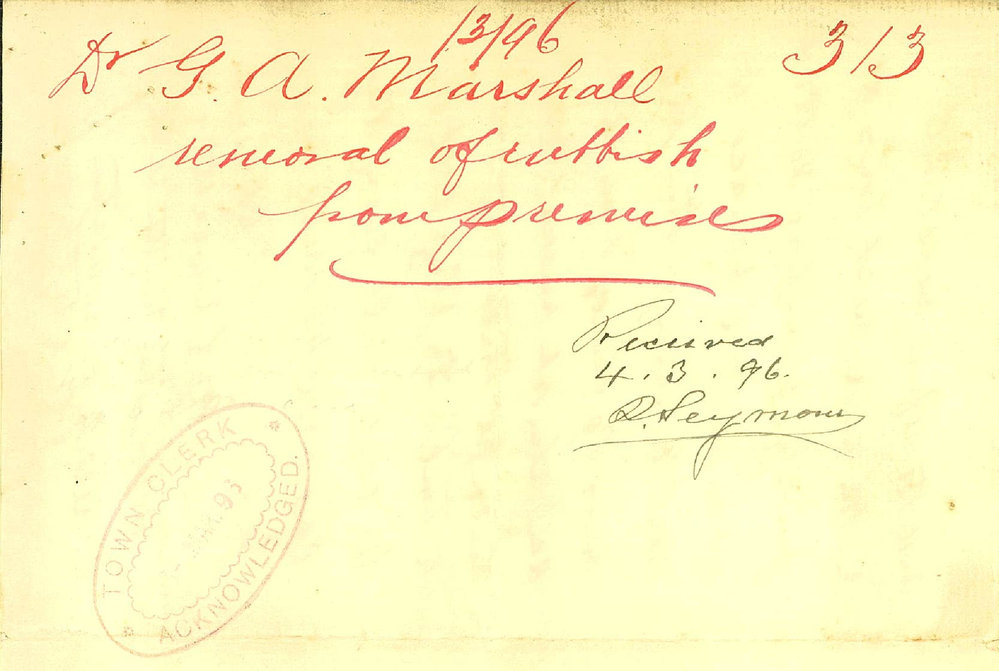 13/96
313
Dr G. A. Marshall
removal of rubbish
from premises
Received
4.3.96.
R. Seymour
TOWN CLERK
MAR.
ACKNOWLEDGED.